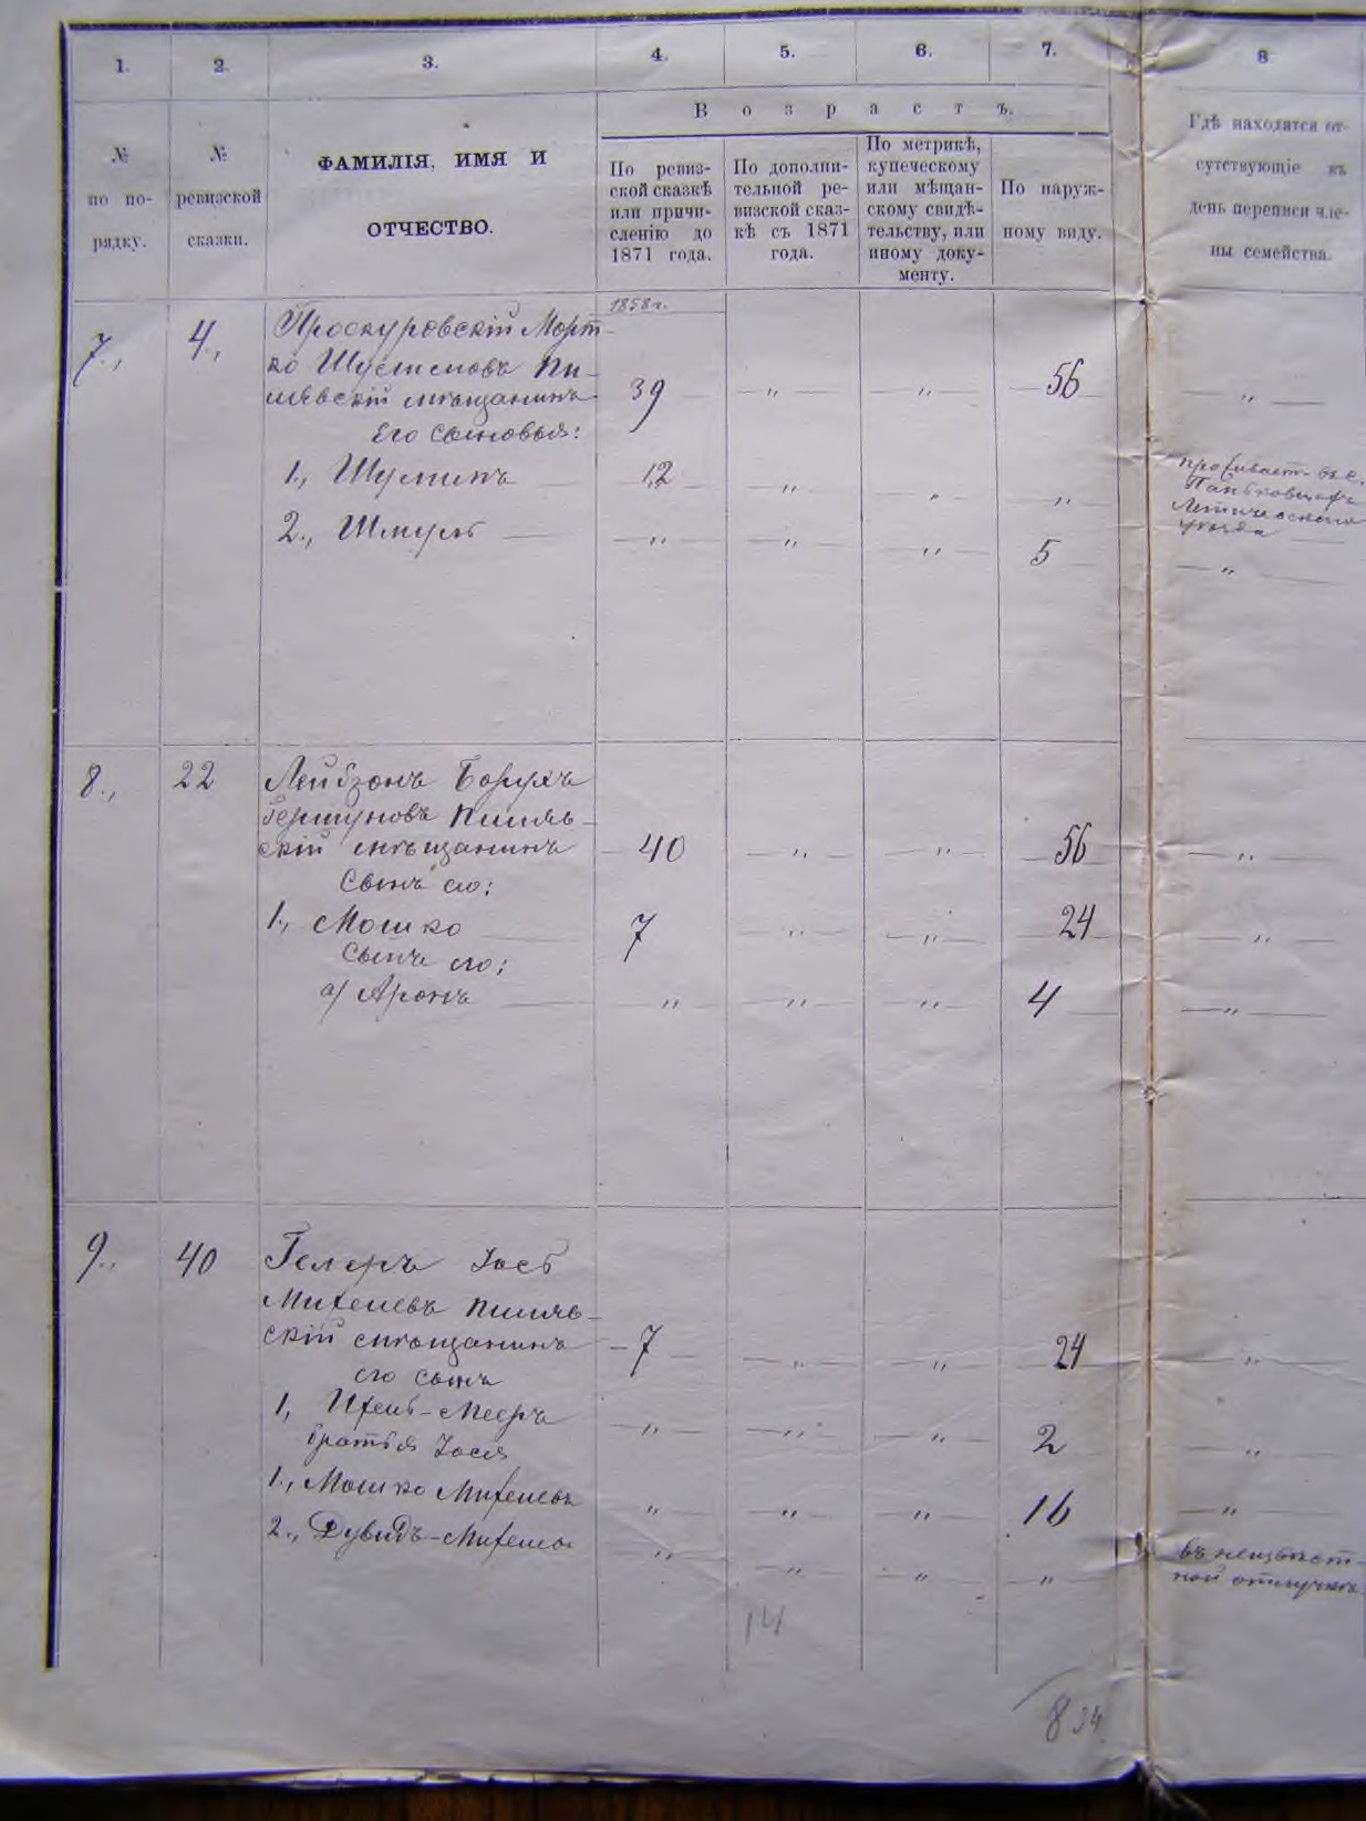 1. 2. 3. 4. 5. 6. 7. 8
В о з р а с т ъ.
№
по по-
рядку.
№
ревизской
сказки.
ФАМИЛІЯ, ИМЯ И
ОТЧЕСТВО.
По ревиз-
ской сказкѣ
или причи-
сленію до
1871 года.
По дополни-
тельной ре-
визской сказ-
кѣ съ 1871
года.
По метрикѣ,
купеческому
или мѣщан-
скому свидѣ-
тельству, или
иному доку-
менту.
По наруж-
ному виду.
Гдѣ находятся от-
сутствующіе въ
день переписи чле-
ны семейства.
1858 г.
7., 4., Проскуровскій Морт-
ко Шулимовъ Пи-
лявскій мѣщанинъ 39 — " — — " — 56 — " —
Его сыновья:
1., Шулимъ 12 " " " проживаетъ въ с.
Летичевскаго
уѣзда
2., Шмуль — " — — " — — " — 5 — " —
8., 22 Лейбзонъ Борухъ
Гершуновъ Пиляв-
скій мѣщанинъ 40 — " — — " — 56 — " —
Сынъ его:
1., Мошко 7 — " — — " — 24 — " —
Сынъ его:
а/ Аронъ " — " — " 4 — " —
9., 40 Гелеръ Іось
Михелевъ Пиляв-
скій мѣщанинъ 7 — " — " 24 — " —
его сынъ
1, Ихель-Мееръ — " — — " — — " — 2 — " —
братья Іося
1., Мошко Михелевъ " " " 16 — " —
2., Дувидъ-Михелев — " — — " — " " въ неизвѣст-
ной отлучкѣ
14
834